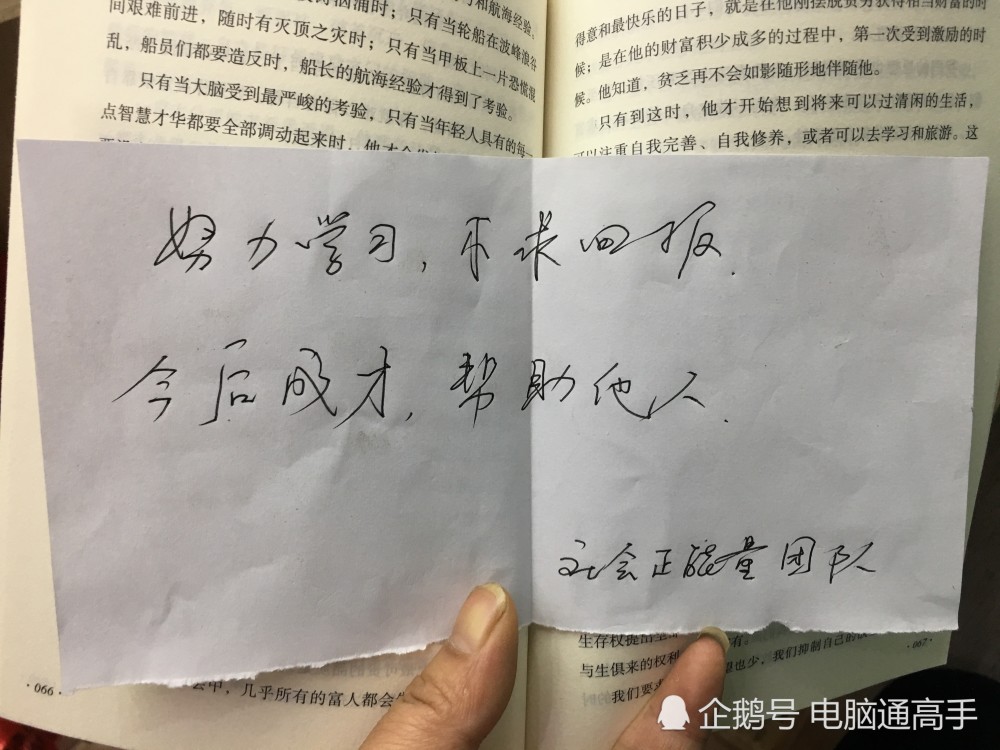 间艰难前进，随时有灭顶之灾时；只有当轮船在波峰浪谷
乱，船员们都要造反时，船长的航海经验才得到了考验。
只有当大脑受到最严峻的考验，只有当年轻人具有的每一
点智慧才华都要全部调动起来时，他才会
得意和最快乐的日子，就是在他刚摆脱贫穷获得相当财富的时
候；是在他的财富积少成多的过程中，第一次受到激励的时
候。他知道，贫乏再不会如影随形地伴随他。
只有到这时，他才开始想到将来可以过清闲的生活，
可以注重自我完善、自我修养，或者可以去学习和旅游。这
努力学习，不求回报.
今后成才，帮助他人.
社会正能量团队
·066·
几乎所有的富人都会
生存权
与生俱来的权利
也少，我们抑制自己的
我们要
·067·
企鹅号 电脑通高手